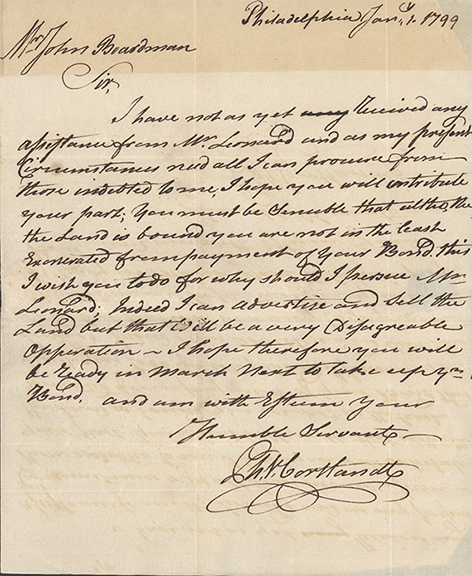 Philadelphia Jany. 1. 1799
Mr John Boardman
Sir,
I have not as yet any Received any
assistance from Mr. Leonard and as my present
Circumstances need all I can procure from
those indebted to me, I hope you will contribute
your part; You must be Sensible that altho, the
the Land is bound you are not in the least
Exonerated from payment of Your Bond. this
I wish you to do for why should I persue Mr
Leonard; Indeed I can advertise and sell the
Land but that will be a very Disagreable
Opperation – I hope therefore you will
be ready in March Next to take up yr.
Bond. and am with Esteem your
Humble Servant –
Ph. V. Cortlandt